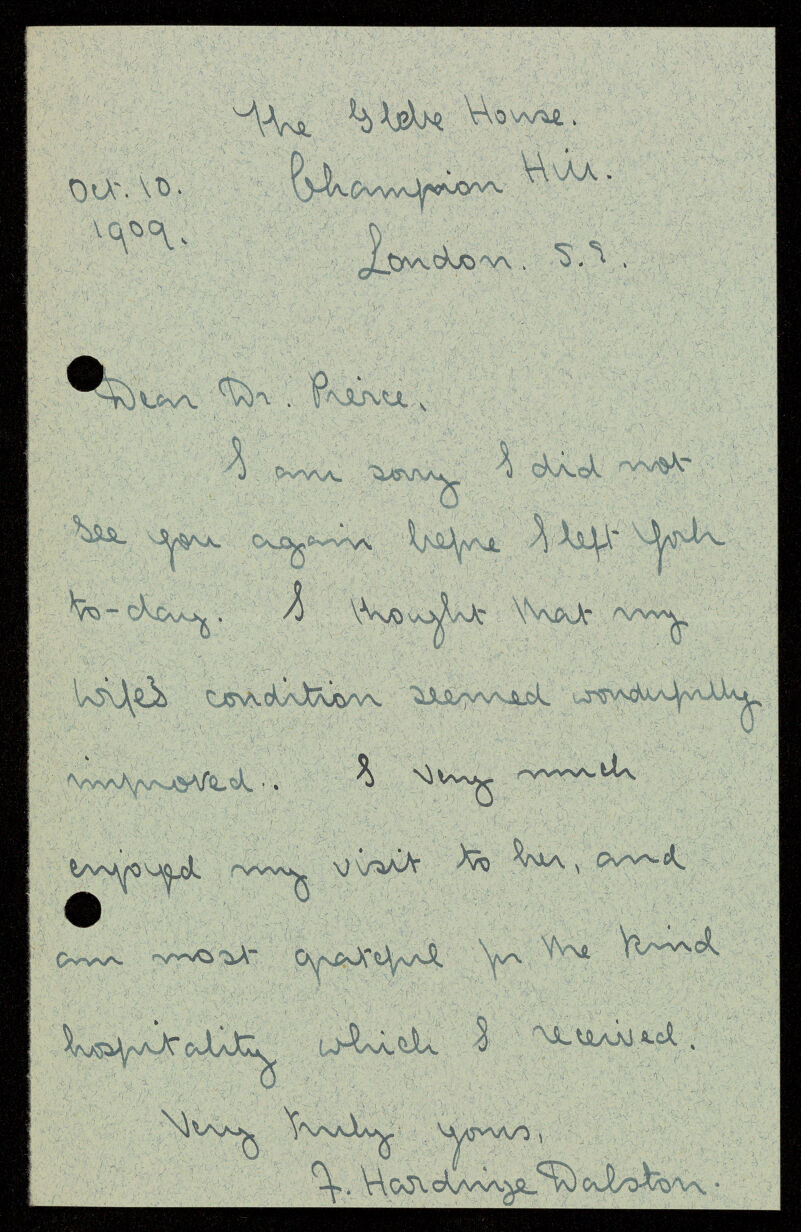 The Glebe House.
Champion Hill.
Oct. 10.
1909.
London. S.E.
Dear Dr. Pierce,
I am sorry I did not
see you again before I left York
to-day. I thought that my
wife's condition seemed wonderfully
improved. I very much
enjoyed my visit to her, and
am most grateful for the kind
hospitality which I received.
Very truly yours,
F. Hardinge Dalston.